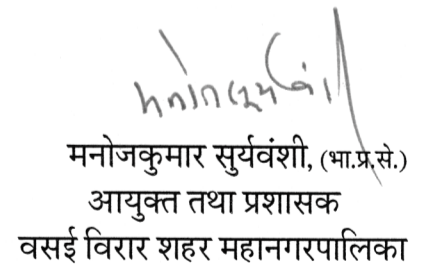 मनोजकुमार सुर्यवंशी, (भा.प्र.से.)
आयुक्त तथा प्रशासक
वसई विरार शहर महानगरपालिका